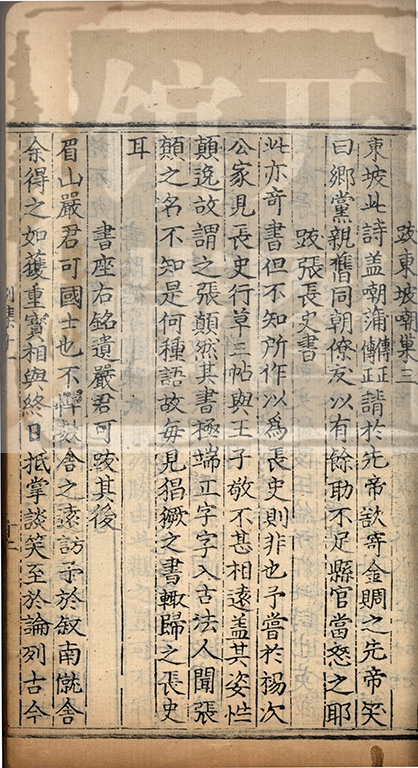 跋東坡嘲巢三
東坡此詩盖嘲蒲傳正傳正請於先帝欲寄金賙之先帝笑
曰鄉黨親舊同朝僚友以有餘助不足縣官當怒之耶
跋張長史書
此亦奇書但不知所作以為長史則非也予嘗於楊次
公家見長史行草三帖與王子敬不甚相遠盖其姿性
顛逸故謂之張顛然其書極端正字字入古法人聞張
顛之名不知是何種語故每見猖獗之書輙歸之長史
耳
書座右銘遺嚴君可跋其後
眉山嚴君可國士也不憚數舍之遠訪予於叙南僦舍
余得之如獲重寶相與終日抵掌談笑至於論列古今